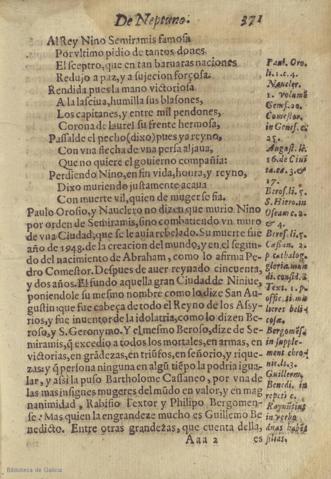 De Neptuno. 371
Al Rey Nino Semiramis famosa
Por vltimo pidio de tantos dones
El sceptro, que en tan baruaras naciones
Redujo a paz, y a sujecion forçosa.
Rendida pues la mano victoriosa
A la lasciua, humilla sus blasones,
Los capitanes, y entre mil pendones,
Corona de laurel su frente hermosa,
Passalde el pecho (dixo) pues ya reyno,
Con vna flecha de vna persa aljaua,
Que no quiere el gouierno compañia:
Perdiendo Nino, en fin vida, honra, y reyno,
Dixo muriendo justamente acaua
Con muerte vil, quien de muger se fia.
Paulo Orosio, y Nauclero no dizen que murio Nino
por orden de Semiramis, sino combatiendo vn muro
de vna Ciudad, que se le auia rebelado. Su muerte fue
año de 1948. de la creacion del mundo, y en el segun-
do del nacimiento de Abraham, como lo afirma Pe-
dro Comestor. Despues de auer reynado cincuenta,
y dos años. El fundo aquella gran Ciudad de Niniue,
poniendole su mesmo nombre como lo dize San Au-
gustin que fue cabeça de todo el Reyno de los Assy-
rios, y fue inuentor de la idolatria, como lo dizen Be-
roso, y S. Geronymo. Y el mesmo Beroso, dize de Se-
miramis, q̃ excedio a todos los mortales, en armas, en
victorias, en grãdezas, en triũfos, en señorio, y rique-
zas: y q̃ persona ninguna en algũ tiẽpo la podria igua-
lar, y assi la puso Bartholome Cassaneo, por vna de
las mas insignes mugeres del mũdo en valor, y en mag
nanimidad, Rabisio Textor y Philipo Bergomen-
se: Mas quien la engrandeze mucho es Guillermo Be
nedicto. Entre otras grandezas, que cuenta della,
Aaa 2 es
Paul. Oro.
li. 1. c. 4.
Naucler.
1. volum.
Comestor,
in Genes. c.
25.
August. li.
16. de Ciui
17.
Beros. li. 5.
S. Hiero. in
Oseam c. 2.
Beros. li. 5.
Cassan. 2.
p. catalog.
gloria mun
di. consid. 2
Text. 1. p.
offic. ti. mu
lieres belli-
cosæ.
Bergomẽs.
in supple-
ment. chro
nic. li. 3.
Guillerm.
Benedi. in
repeti c.
Raynutius
in verbo
sitas.
Biblioteca de Galicia